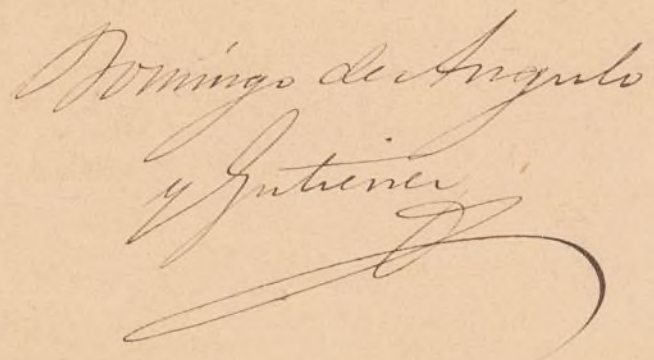 Domingo de Angulo
y Gutierrez